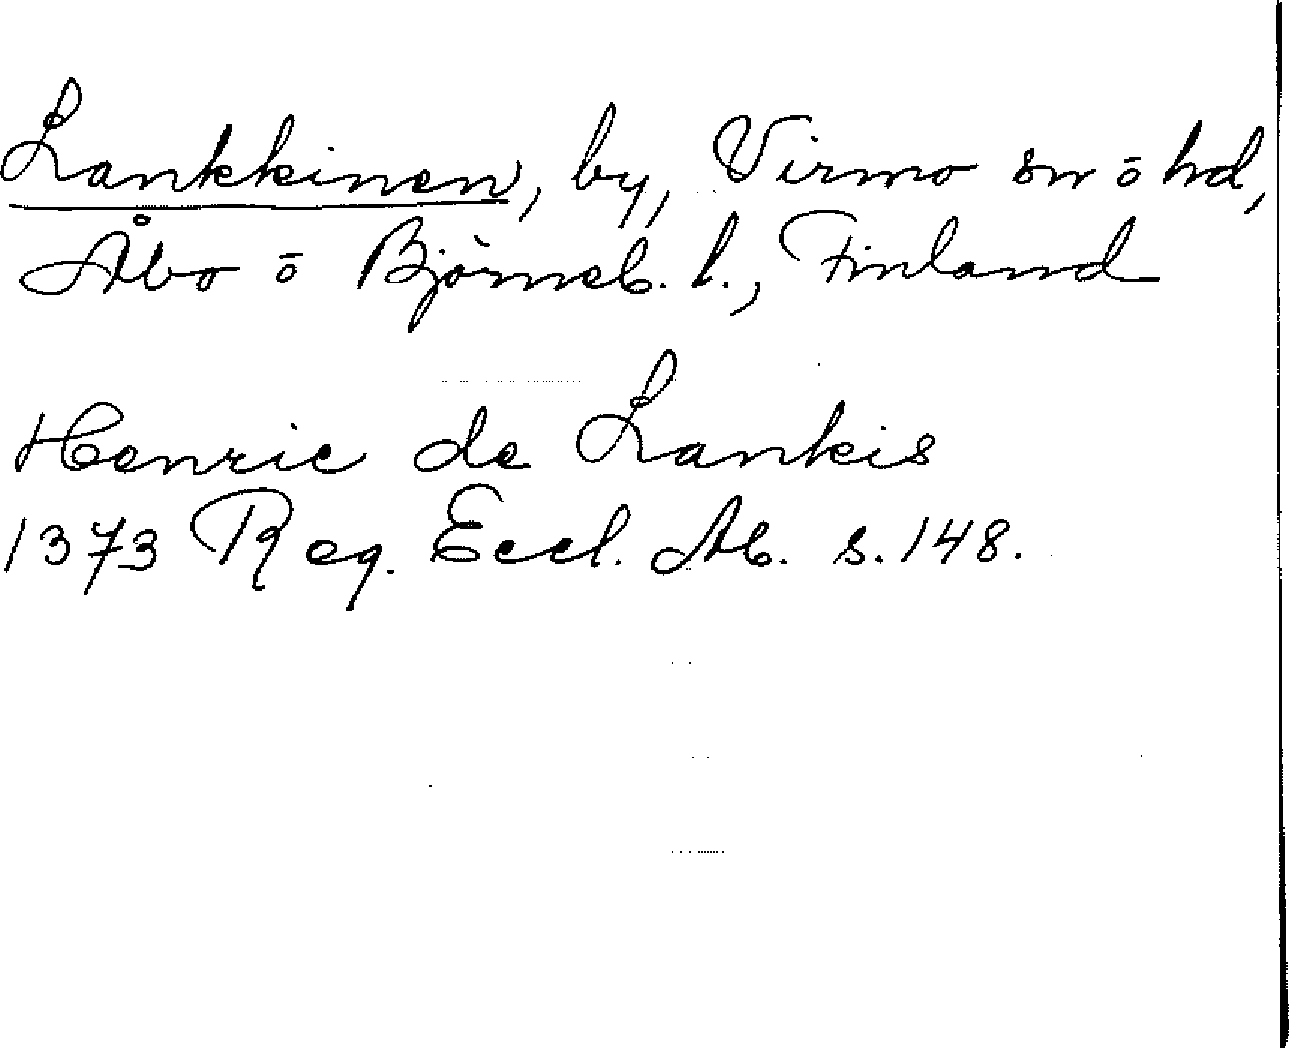 Lankkinen, by, Virmo sn ō hd,
Åbo ō Björneb. l., Finland
Henric de Lankis
1373 Reg. Eccl. Ab. s. 148.